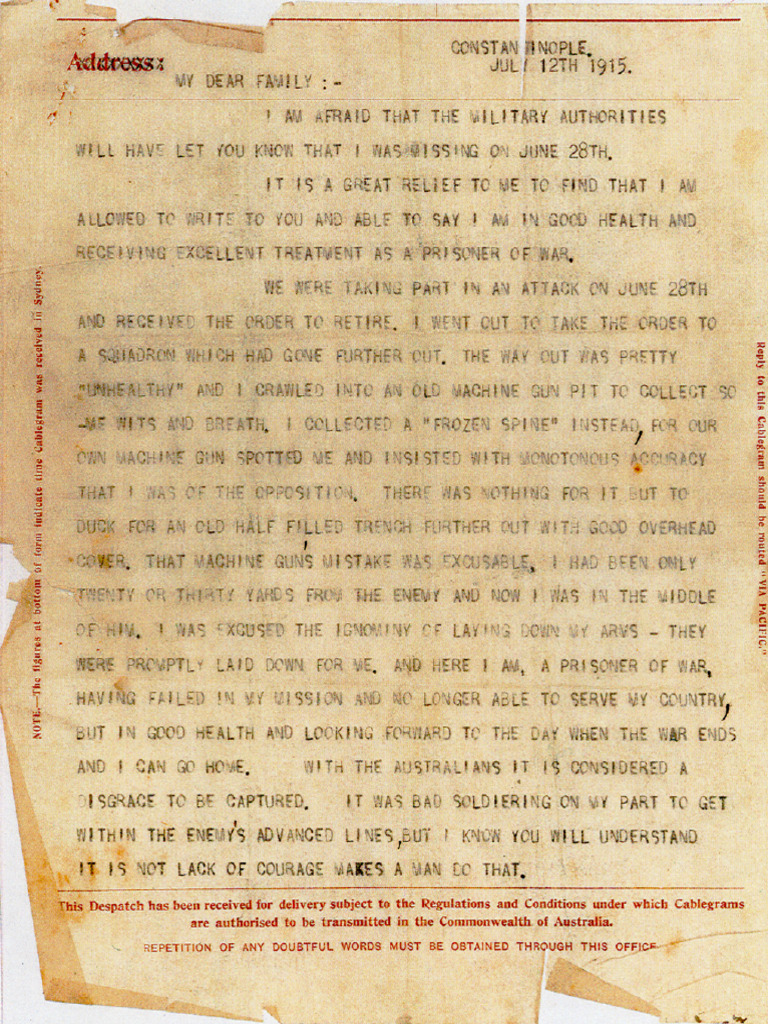 CONSTANTINOPLE.
Address:
JULY 12TH 1915.
MY DEAR FAMILY :-
I AM AFRAID THAT THE MILITARY AUTHORITIES
WILL HAVE LET YOU KNOW THAT I WAS MISSING ON JUNE 28TH.
IT IS A GREAT RELIEF TO ME TO FIND THAT I AM
ALLOWED TO WRITE TO YOU AND ABLE TO SAY I AM IN GOOD HEALTH AND
RECEIVING EXCELLENT TREATMENT AS A PRISONER OF WAR.
WE WERE TAKING PART IN AN ATTACK ON JUNE 28TH
AND RECEIVED THE ORDER TO RETIRE. I WENT OUT TO TAKE THE ORDER TO
A SQUADRON WHICH HAD GONE FURTHER OUT. THE WAY OUT WAS PRETTY
"UNHEALTHY" AND I CRAWLED INTO AN OLD MACHINE GUN PIT TO COLLECT SO
-ME WITS AND BREATH. I COLLECTED A "FROZEN SPINE" INSTEAD, FOR OUR
OWN MACHINE GUN SPOTTED ME AND INSISTED WITH MONOTONOUS ACCURACY
THAT I WAS OF THE OPPOSITION. THERE WAS NOTHING FOR IT BUT TO
DUCK FOR AN OLD HALF FILLED TRENCH FURTHER OUT WITH GOOD OVERHEAD
COVER. THAT MACHINE GUN'S MISTAKE WAS EXCUSABLE, I HAD BEEN ONLY
TWENTY OR THIRTY YARDS FROM THE ENEMY AND NOW I WAS IN THE MIDDLE
OF HIM. I WAS EXCUSED THE IGNOMINY OF LAYING DOWN MY ARMS - THEY
WERE PROMPTLY LAID DOWN FOR ME. AND HERE I AM, A PRISONER OF WAR,
HAVING FAILED IN MY MISSION AND NO LONGER ABLE TO SERVE MY COUNTRY,
BUT IN GOOD HEALTH AND LOOKING FORWARD TO THE DAY WHEN THE WAR ENDS
AND I CAN GO HOME. WITH THE AUSTRALIANS IT IS CONSIDERED A
DISGRACE TO BE CAPTURED. IT WAS BAD SOLDIERING ON MY PART TO GET
WITHIN THE ENEMY'S ADVANCED LINES, BUT I KNOW YOU WILL UNDERSTAND
IT IS NOT LACK OF COURAGE MAKES A MAN DO THAT.
This Despatch has been received for delivery subject to the Regulations and Conditions under which Cablegrams
are authorised to be transmitted in the Commonwealth of Australia.
REPETITION OF ANY DOUBTFUL WORDS MUST BE OBTAINED THROUGH THIS OFFICE
NOTE.—The figures at bottom of form indicate time Cablegram was received in Sydney.
Reply to this Cablegram should be routed "VIA PACIFIC."